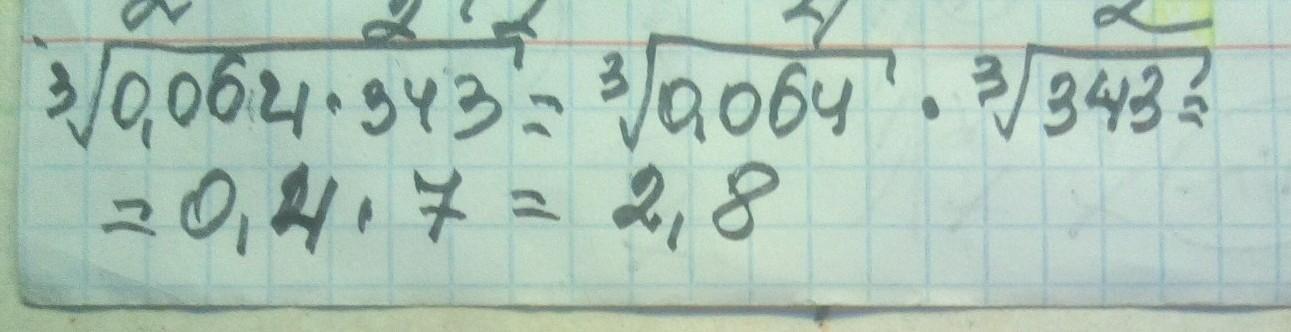 ∛0,064 · 343 = ∛0,064 · ∛343 =
= 0,4 · 7 = 2,8